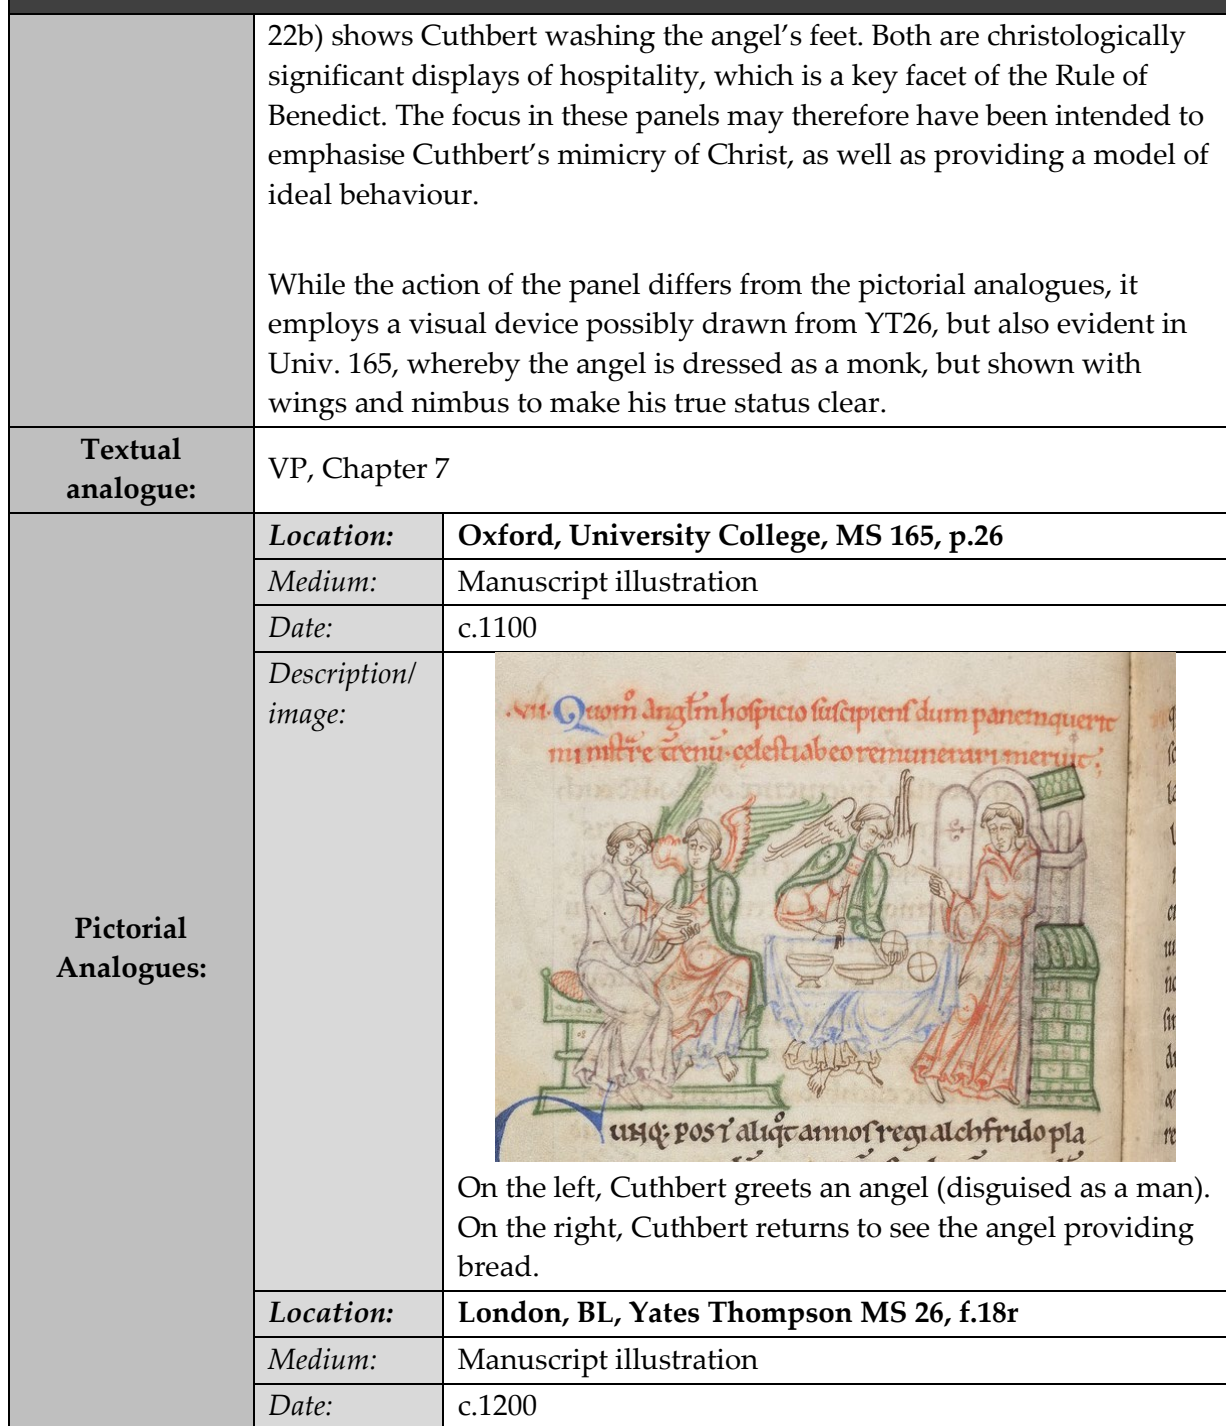 22b) shows Cuthbert washing the angel’s feet. Both are christologically
significant displays of hospitality, which is a key facet of the Rule of
Benedict. The focus in these panels may therefore have been intended to
emphasise Cuthbert’s mimicry of Christ, as well as providing a model of
ideal behaviour.
While the action of the panel differs from the pictorial analogues, it
employs a visual device possibly drawn from YT26, but also evident in
Univ. 165, whereby the angel is dressed as a monk, but shown with
wings and nimbus to make his true status clear.
Textual
analogue:
VP, Chapter 7
Pictorial
Analogues:
Location:
Oxford, University College, MS 165, p.26
Medium:
Manuscript illustration
Date:
c.1100
Description/
image:
hospicio suscipiens dum panem querit
celestia ab eo remunerari meruit
regi alchfrido pla
On the left, Cuthbert greets an angel (disguised as a man).
On the right, Cuthbert returns to see the angel providing
bread.
Location:
London, BL, Yates Thompson MS 26, f.18r
Medium:
Manuscript illustration
Date:
c.1200